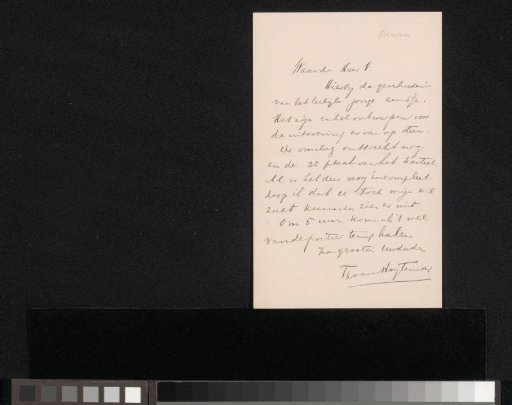 Waarde Heer V.
Hierbij de geschiedenis
van het leelijke jonge eendje.
Het zijn enkel ontwerpen voor
de uitvoering er van op steen.
De omslag ontbreekt nog
en de 2e plaat van het
is het dus nog incompleet
hoop ik dat U toch mijn wil
zult kunnen zien er uit
Om 5 uur kom ik 't wel
van de portier terug halen
Na groeten
Th van Hoytema